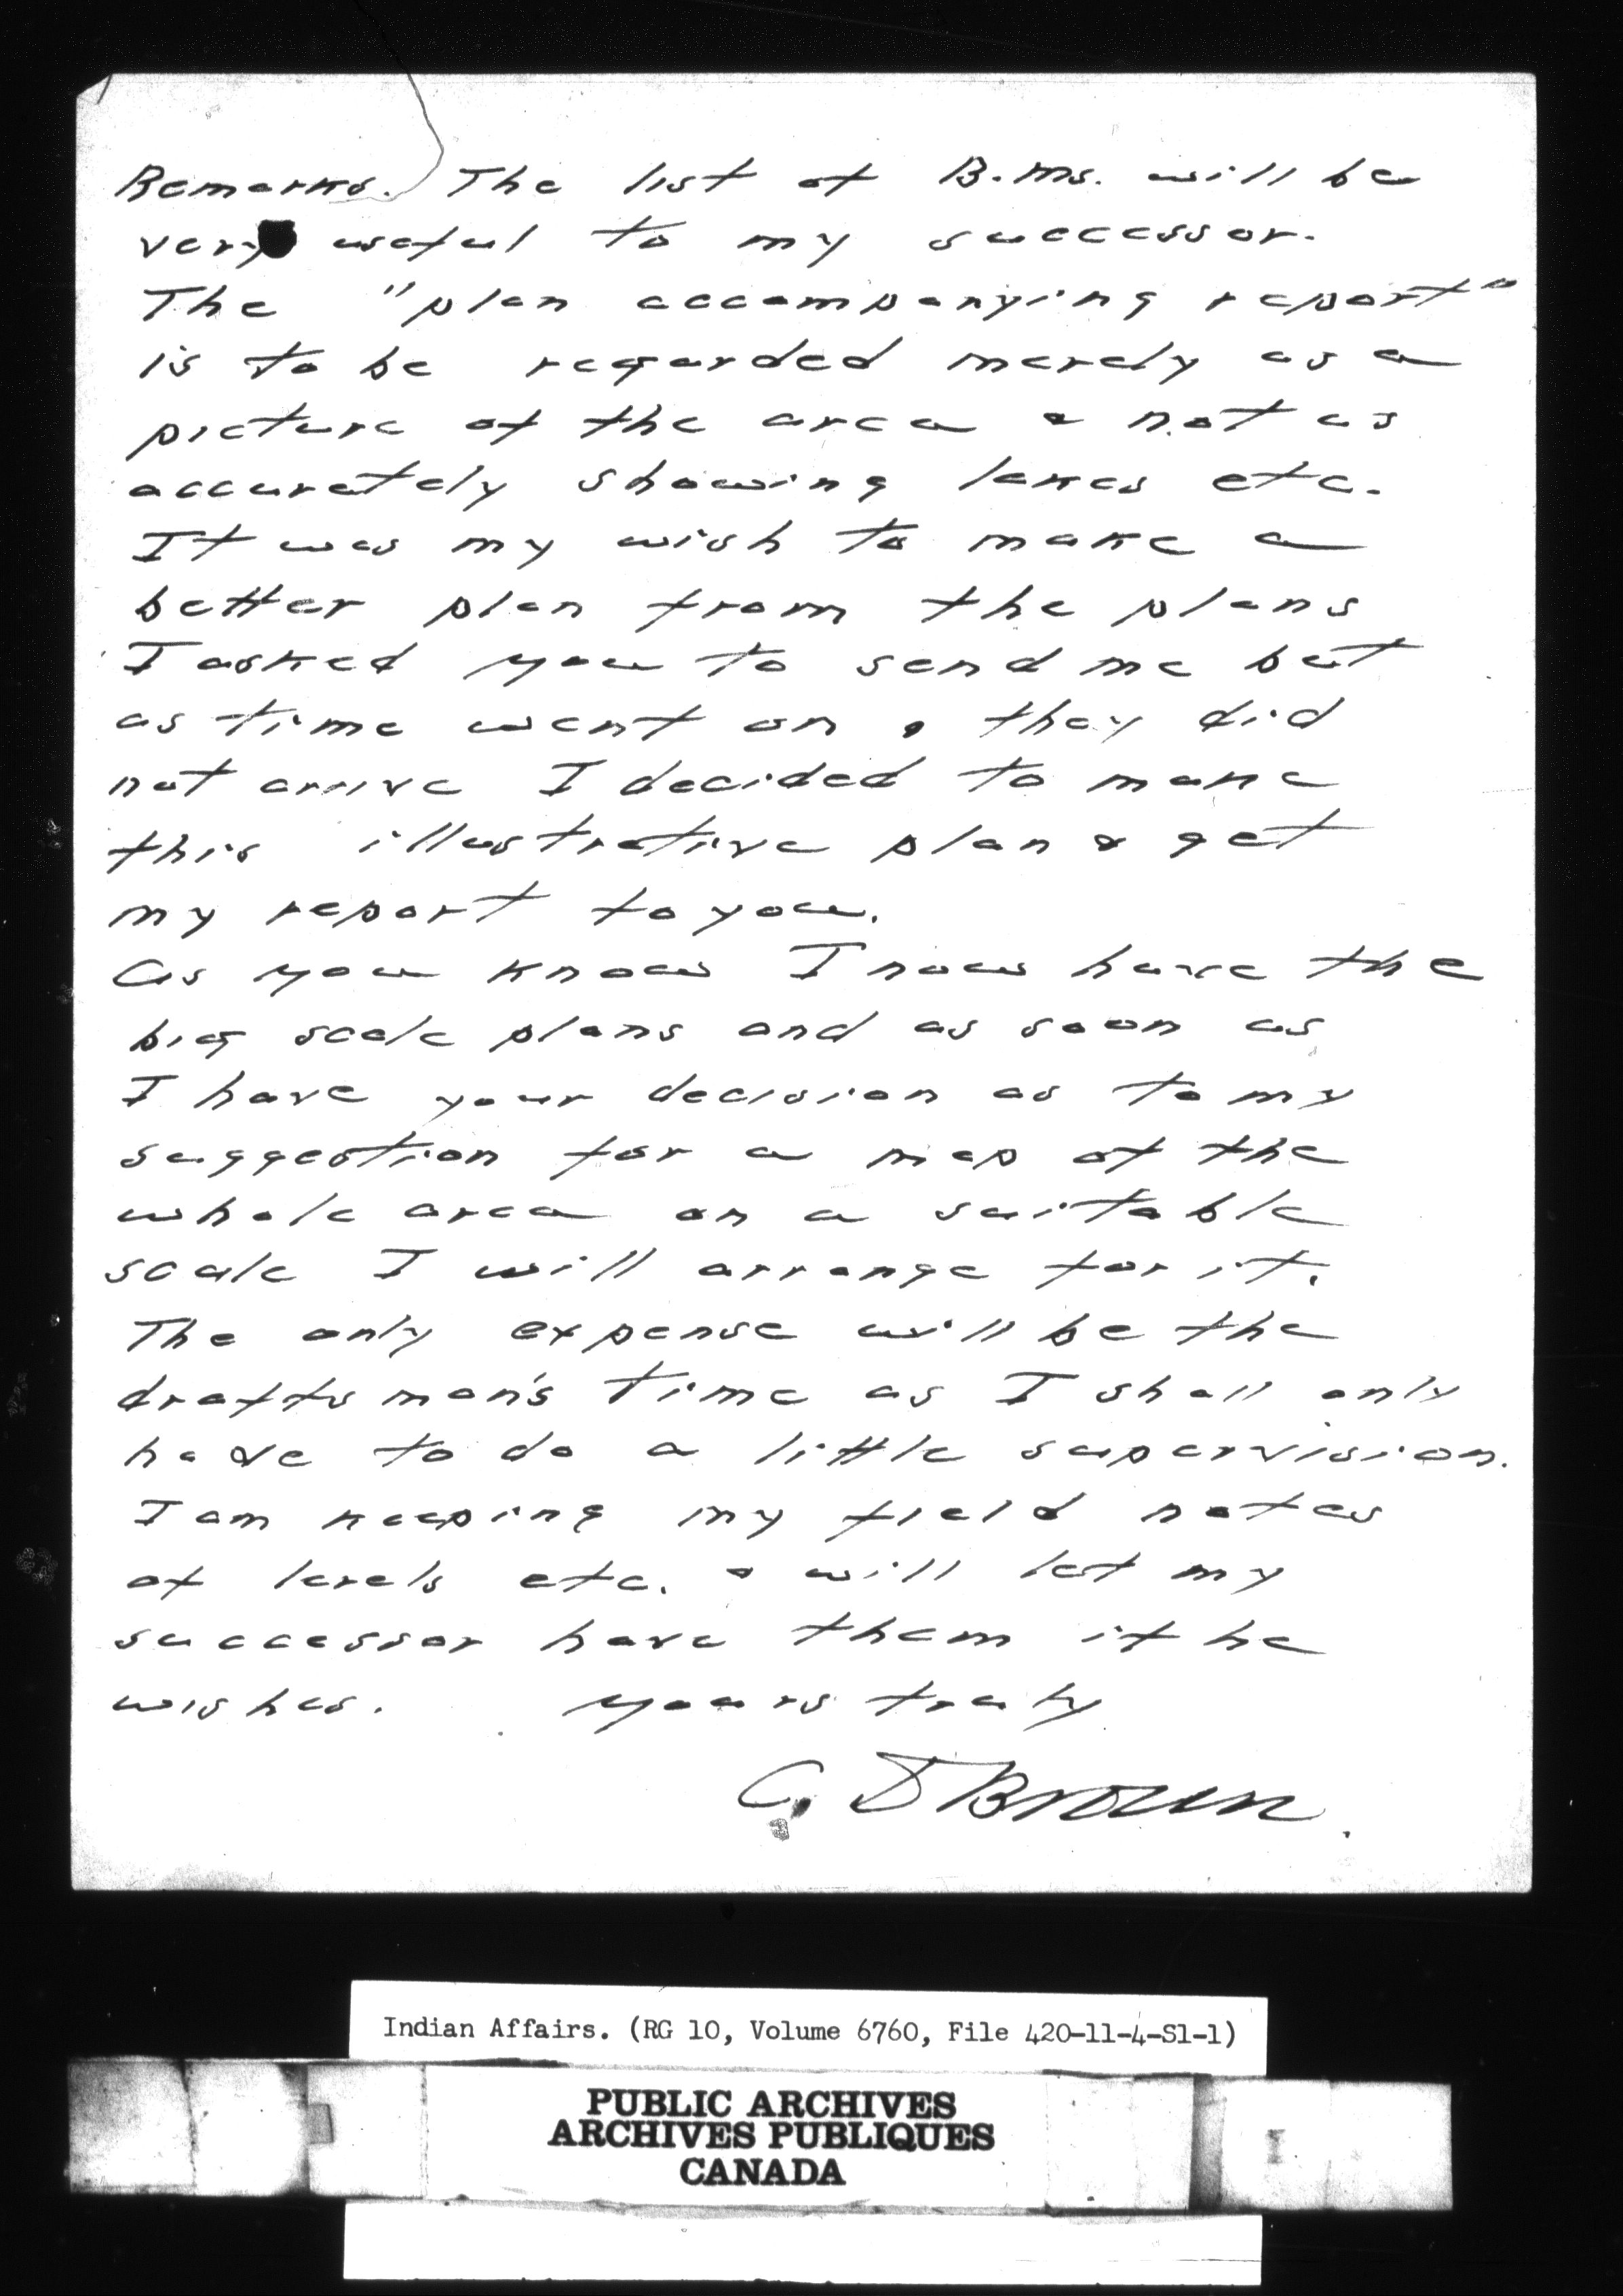 Remarks. The list of B.Ms. will be
very useful to my successor.
The "plan accompanying report"
is to be regarded merely as a
picture of the area & not as
accurately showing lakes etc.
It was my wish to make a
better plan from the plans
I asked you to send me but
as time went on & they did
not arrive I decided to make
this illustrative plan & get
my report to you.
As you know I now have the
big scale plans and as soon as
I have your decision as to my
suggestion for a map of the
whole area on a suitable
scale I will arrange for it.
The only expense will be the
draftsman's time as I shall only
have to do a little supervision.
I am keeping my field notes
of levels etc. & will let my
successor have them if he
wishes. Yours truly
C. D Brown.
Indian Affairs. (RG 10, Volume 6760, File 420-11-4-S1-1)
PUBLIC ARCHIVES
ARCHIVES PUBLIQUES
CANADA